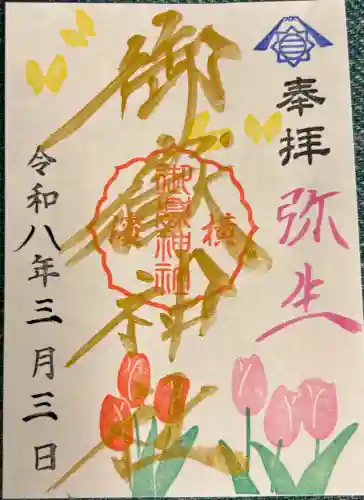 奉拝
弥生
御嶽神社
横
濱
御嶽神社
令和八年三月三日